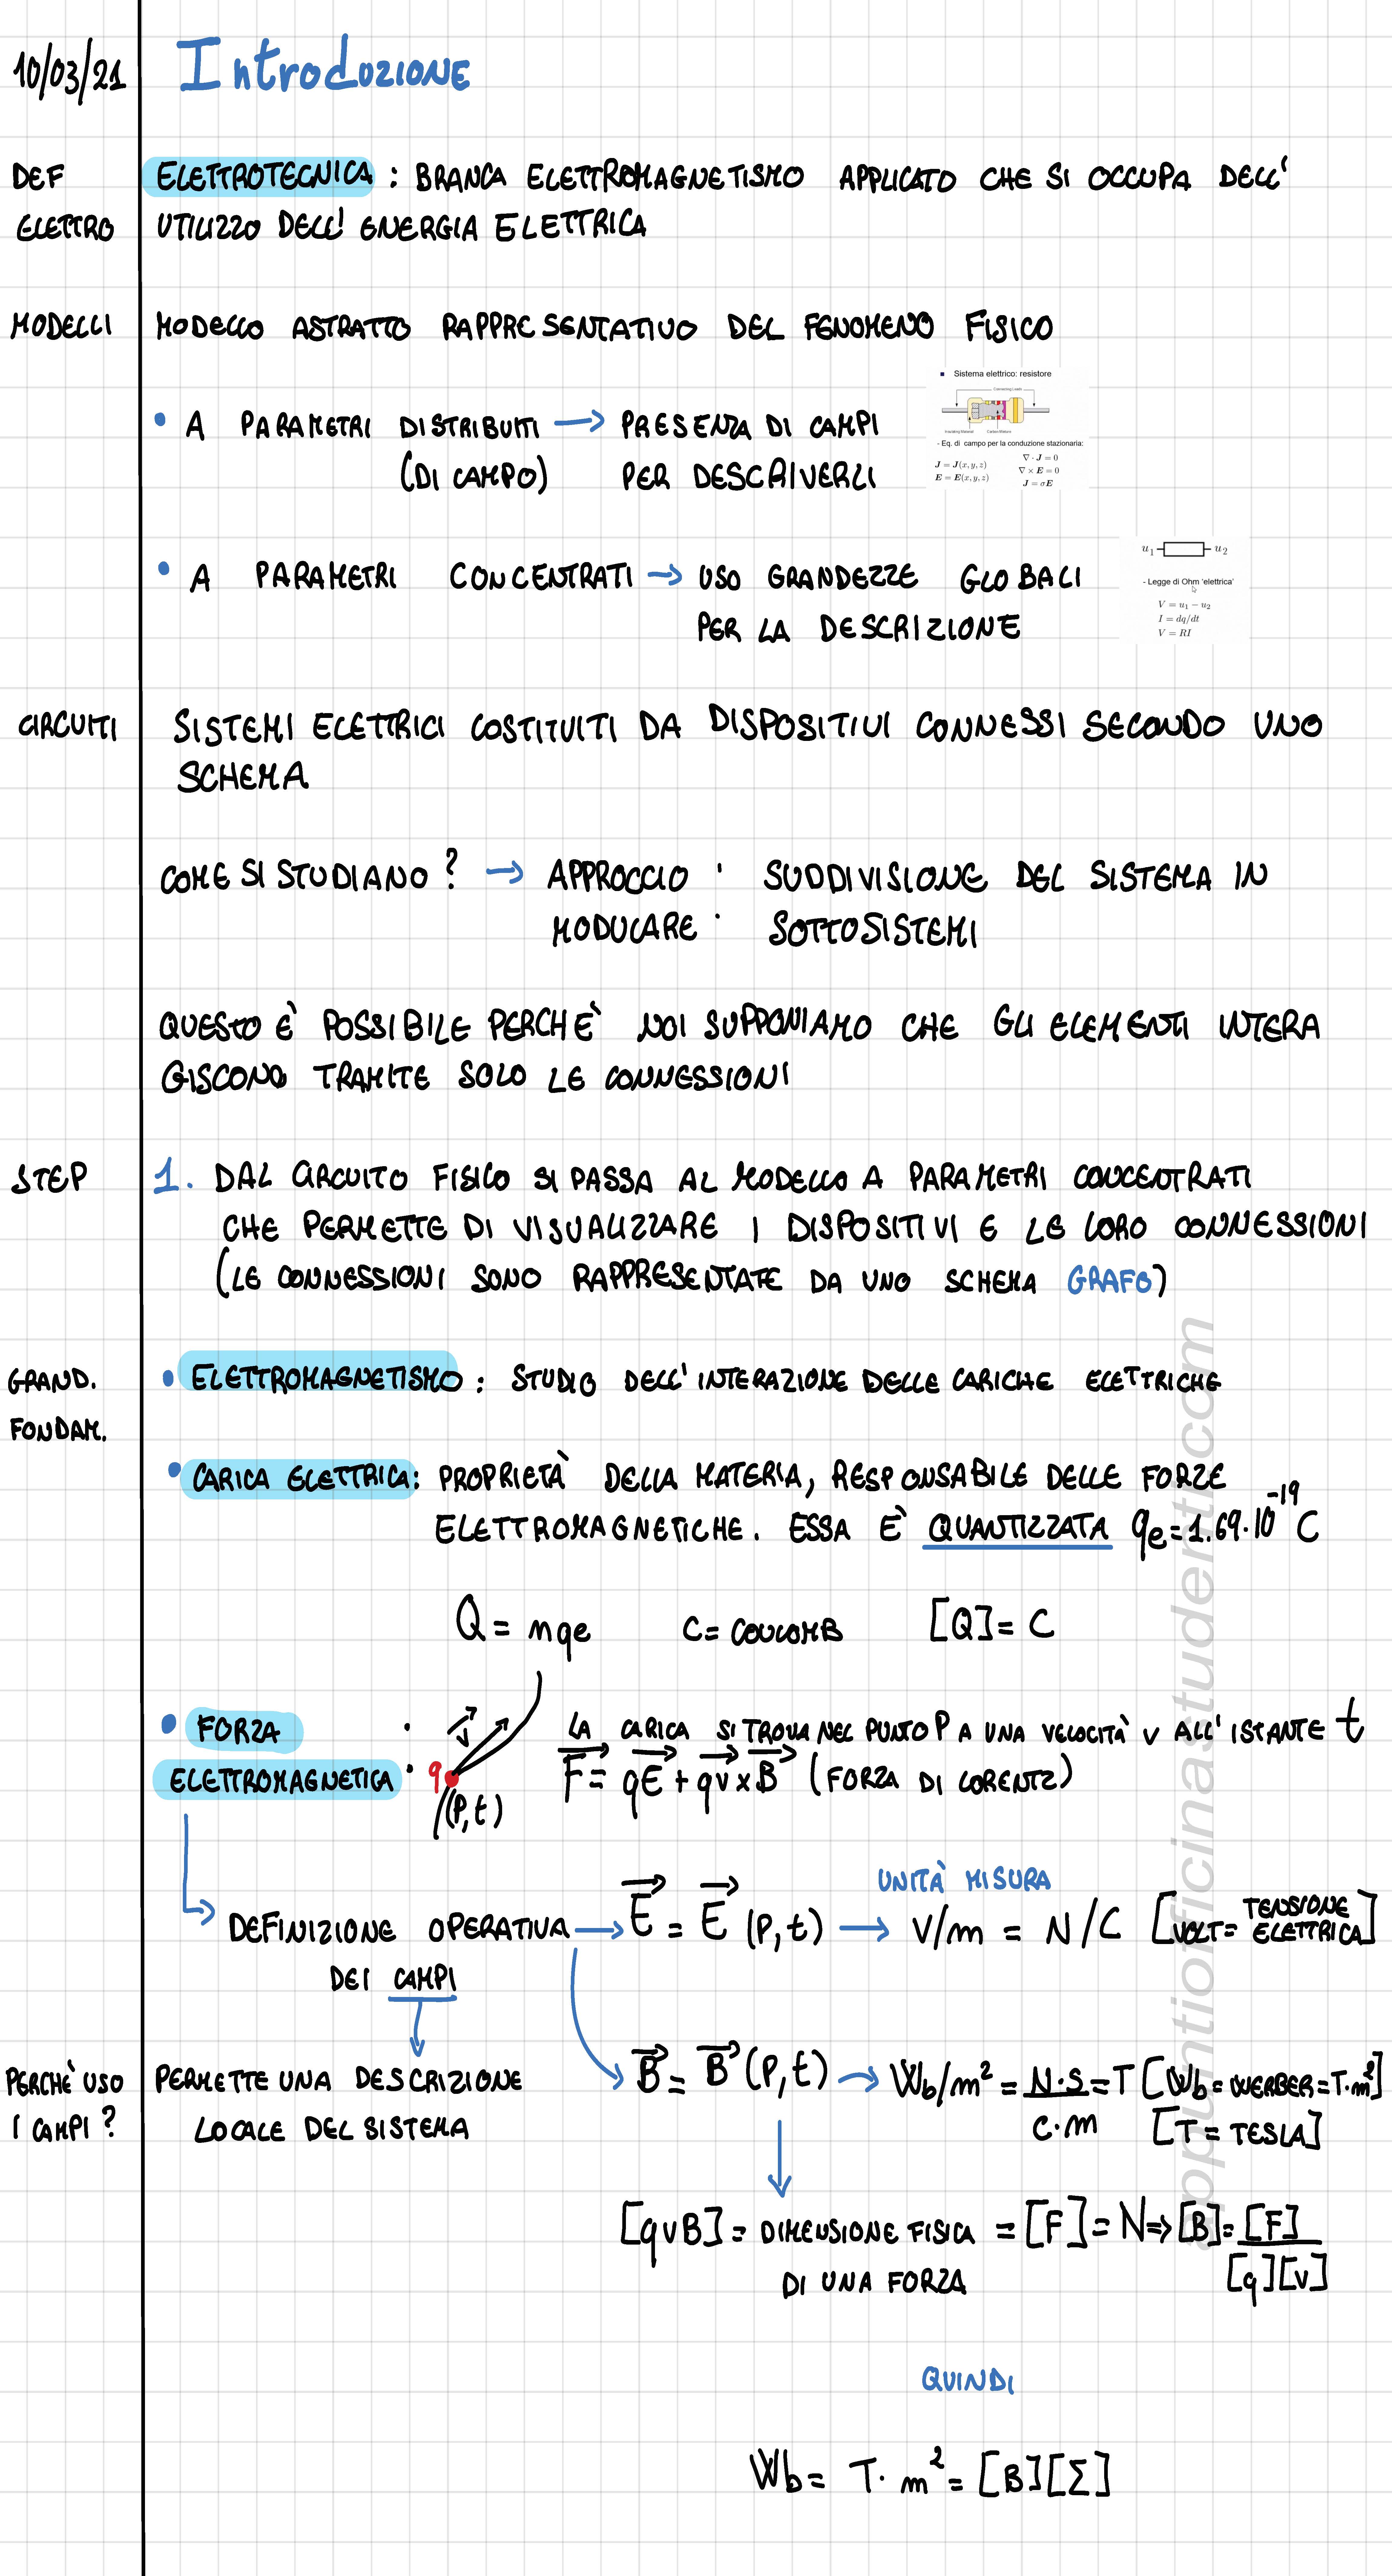 10/03/21 Introduzione
DEF ELETTROTECNICA : BRANCA ELETTROMAGNETISMO APPLICATO CHE SI OCCUPA DELL'
ELETTRO UTILIZZO DELL' ENERGIA ELETTRICA
MODELLI MODELLO ASTRATTO RAPPRESENTATIVO DEL FENOMENO FISICO
• A PARAMETRI DISTRIBUITI → PRESENZA DI CAMPI
(DI CAMPO) PER DESCRIVERLI
▪ Sistema elettrico: resistore
Connecting Leads
Insulating Material Carbon Mixture
- Eq. di campo per la conduzione stazionaria:
J = J(x, y, z) ∇ · J = 0
E = E(x, y, z) ∇ × E = 0
J = σE
• A PARAMETRI CONCENTRATI → USO GRANDEZZE GLOBALI
PER LA DESCRIZIONE
u₁ u₂
- Legge di Ohm 'elettrica'
V = u₁ − u₂
I = dq/dt
V = RI
CIRCUITI SISTEMI ELETTRICI COSTITUITI DA DISPOSITIVI CONNESSI SECONDO UNO
SCHEMA
COME SI STUDIANO ? → APPROCCIO : SUDDIVISIONE DEL SISTEMA IN
MODULARE SOTTOSISTEMI
QUESTO È POSSIBILE PERCHÈ NOI SUPPONIAMO CHE GLI ELEMENTI INTERA
GISCONO TRAMITE SOLO LE CONNESSIONI
STEP 1. DAL CIRCUITO FISICO SI PASSA AL MODELLO A PARAMETRI CONCENTRATI
CHE PERMETTE DI VISUALIZZARE I DISPOSITIVI E LE LORO CONNESSIONI
(LE CONNESSIONI SONO RAPPRESENTATE DA UNO SCHEMA GRAFO)
GRAND. • ELETTROMAGNETISMO : STUDIO DELL'INTERAZIONE DELLE CARICHE ELETTRICHE
FONDAM.
• CARICA ELETTRICA : PROPRIETÀ DELLA MATERIA, RESPONSABILE DELLE FORZE
ELETTROMAGNETICHE. ESSA È QUANTIZZATA qe = 1.69·10⁻¹⁹ C
Q = nqe C = COULOMB [Q] = C
• FORZA : v LA CARICA SI TROVA NEL PUNTO P A UNA VELOCITÀ V ALL'ISTANTE t
ELETTROMAGNETICA : q F⃗ = qE⃗ + qv⃗ × B⃗ (FORZA DI LORENTZ)
(P, t)
UNITÀ MISURA
DEFINIZIONE OPERATIVA → E⃗ = E⃗ (P, t) → V/m = N/C [VOLT = TENSIONE ELETTRICA]
DEI CAMPI
PERCHÈ USO PERMETTE UNA DESCRIZIONE B⃗ = B⃗ (P, t) → Wb/m² = N·S / C·m = T [Wb = WERBER = T·m²]
I CAMPI ? LOCALE DEL SISTEMA [T = TESLA]
[qvB] = DIMENSIONE FISICA = [F] = N ⇒ [B] = [F] / [q][v]
DI UNA FORZA
QUINDI
Wb = T · m² = [B][Σ]
appuntiofficinastudenti.com